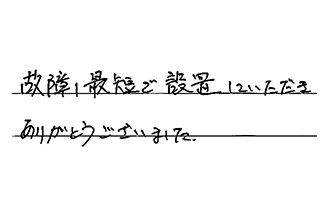 故障、最短で設置していただき
ありがとうございました。